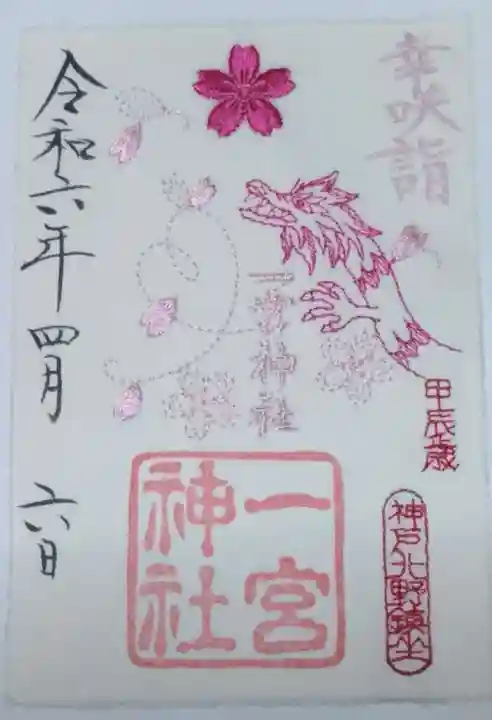 幸咲詣
一宮神社
甲辰歳
神戸北野鎮坐
一宮
神社
令和六年 四月 六日